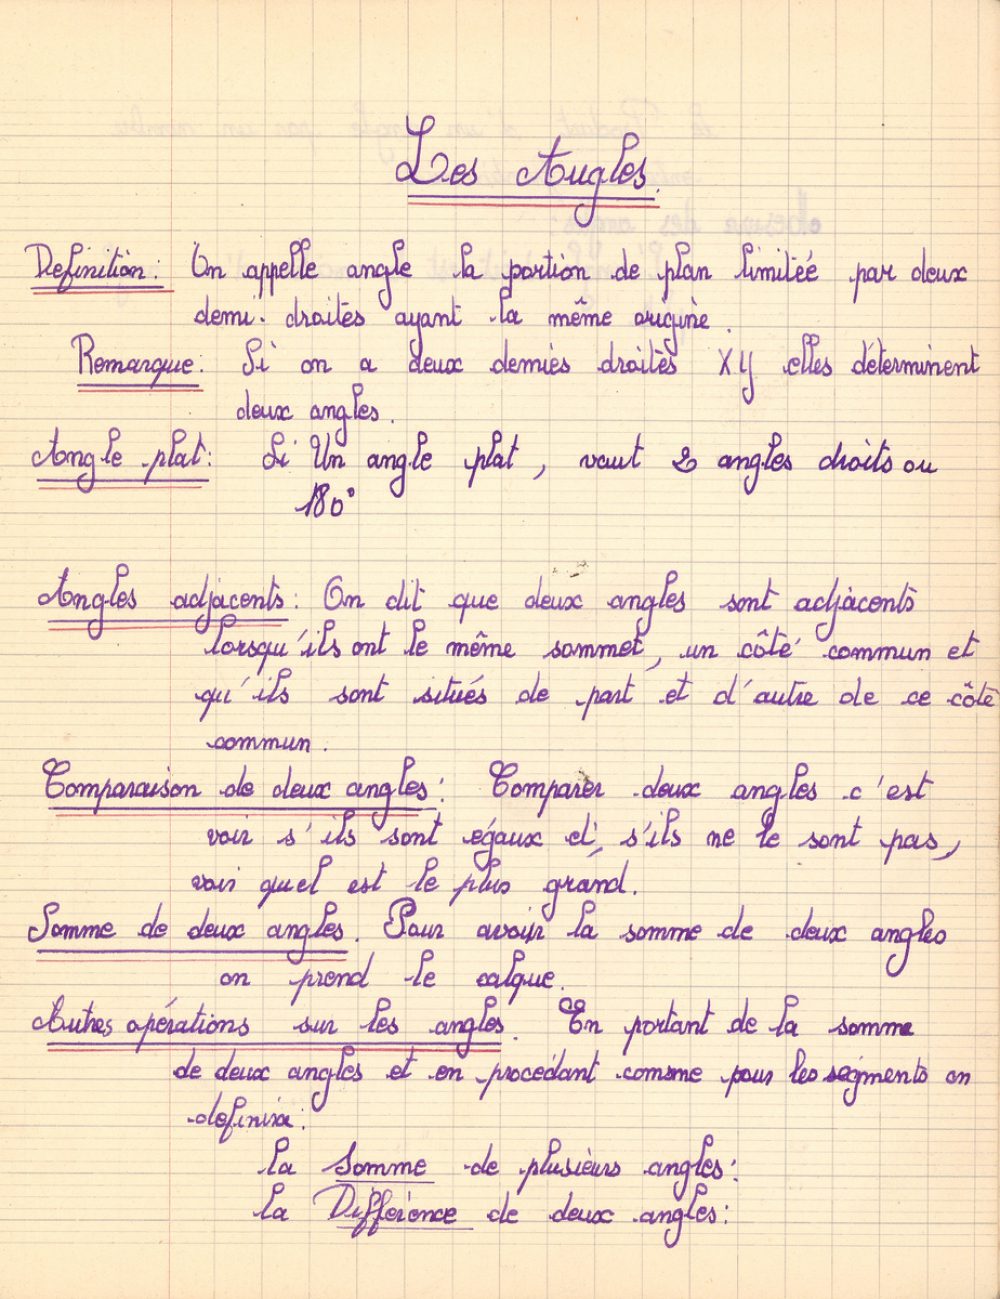 Les Angles.
Definition: On appelle angle la portion de plan limitée par deux
demi-droites ayant la même origine.
Remarque: Si on a deux demies droites XY elles déterminent
deux angles.
Angle plat: Si Un angle plat, vaut 2 angles droits ou
180°
Angles adjacents: On dit que deux angles sont adjacents
lorsqu'ils ont le même sommet, un côté commun et
qu'ils sont situés de part et d'autre de ce côté
commun.
Comparaison de deux angles: Comparer deux angles c'est
voir s'ils sont égaux et, s'ils ne le sont pas,
voir quel est le plus grand.
Somme de deux angles. Pour avoir la somme de deux angles
on prend le calque.
Autres opérations sur les angles. En portant de la somme
de deux angles et en procédant comme pour les segments on
definira:
la Somme de plusieurs angles:
la Différence de deux angles: